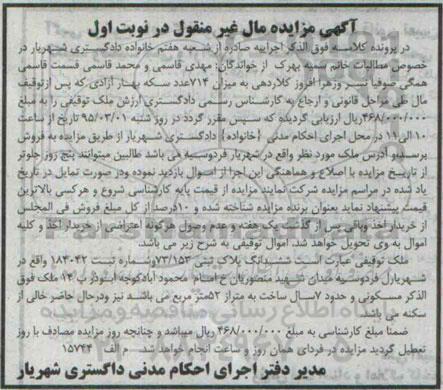 آگهی مزایده مال غیر منقول در نوبت اول
در پرونده کلاسه فوق الذکر اجراییه صادره از شعبه هفتم خانواده دادگستری شهریار در
خصوص مطالبات خانم سمیه بهرک از خواندگان: مهدی قاسمی و محمد قاسمی قسمت قاسمی
همگی صوفیا نسر وزهرا افروز کلاردهی به میزان ۷۱۴عدد سکه بهار آزادی که پس ازتوقیف
مال طی مراحل قانونی و ارجاع به کارشناس رسمی دادگستری ارزش ملک توقیفی را به مبلغ
۴۶۸/۰۰۰/۰۰۰ریال ارزیابی گردیده که سپس مقرر گردد در روز شنبه ۹۵/۰۳/۰۱ تاریخ از ساعت
۱۰الی۱۱ در محل اجرای احکام مدنی {خانواده} دادگستری شهریار از طریق مزایده به فروش
برسدیو آدرس ملک مورد نظر واقع در شهریار فردوسیه می باشد طالبین میتوانند پنج روز جلوتر
از تاریخ مزایده با اصلاع و هماهنگی این اجرا از اموال بازدید نموده ودر صورت تمایل در تاریخ
یاد شده در مراسم مزایده شرکت نمایند مزایده از قیمت پایه کارشناسی شروع و هرکسی بالاترین
قیمت پیشنهاد نماید بعنوان برنده مزایده شناخته شده و ۱۰درصد از کل مبلغ فروش فی المجلس
از خریدار اخذ وباقی پس از گذشت یک هفته و عدم وصول هرگونه اعتراضی از خریدار اخذ و کلیه
اموال به وی تحویل خواهد شد. اموال توقیفی به شرح زیر می باشد.
ملک توقیفی عبارت است ششدانگ پلاک ثبتی ۷۳/۱۵۳وشماره ثبت ۱۸۴۰۴۲ واقع در
شهریارل فردوسیه میدان شهید منصوریان خ امام محمود آبادکوچه ابوذر پ ۱۴ ملک فوق
الذکر مسکونی و حدود ۷سال ساخت به متراژ ۵۲متر مربع می باشد نیز ودرحال حاضر خالی از
سکنه می باشد.
ضمنا مبلغ کارشناسی به مبلغ ۴۶۸/۰۰۰/۰۰۰ ریال میباشد و چنانچه روز مزایده مصادف با روز
تعطیل گردید مزایده در فردای همان روز و ساعت انجام خواهد شد. م الف ۱۵۷۴۴
مدیر دفتر اجرای احکام مدنی داگستری شهریار